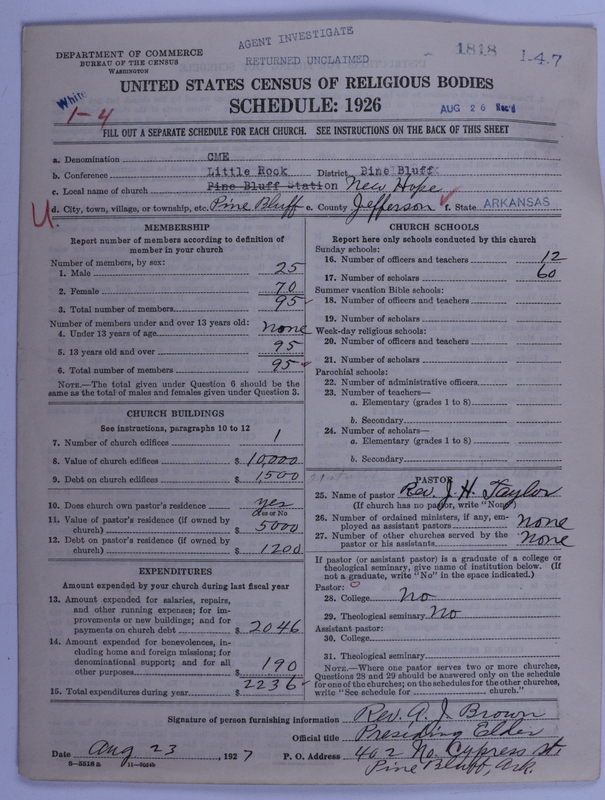 AGENT INVESTIGATE
DEPARTMENT OF COMMERCE
BUREAU OF THE CENSUS
WASHINGTON
RETURNED UNCLAIMED
1818
1-4 7
UNITED STATES CENSUS OF RELIGIOUS BODIES
White
1-4
SCHEDULE: 1926
AUG 26 Rec'd
FILL OUT A SEPARATE SCHEDULE FOR EACH CHURCH. SEE INSTRUCTIONS ON THE BACK OF THIS SHEET
a. Denomination CME
b. Conference Little Rock District Pine Bluff
c. Local name of church Pine Bluff Station New Hope
U. d. City, town, village, or township, etc. Pine Bluff e. County Jefferson f. State ARKANSAS
MEMBERSHIP
Report number of members according to definition of
member in your church
Number of members, by sex:
1. Male 25
2. Female 70
3. Total number of members 95
Number of members under and over 13 years old:
4. Under 13 years of age none
5. 13 years old and over 95
6. Total number of members 95
NOTE.—The total given under Question 6 should be the
same as the total of males and females given under Question 3.
CHURCH BUILDINGS
See instructions, paragraphs 10 to 12
7. Number of church edifices 1
8. Value of church edifices $ 10,000
9. Debt on church edifices $ 1,500
10. Does church own pastor's residence yes
Yes or No
11. Value of pastor's residence (if owned by
church) $ 5000
12. Debt on pastor's residence (if owned by
church) $ 1200
EXPENDITURES
Amount expended by your church during last fiscal year
13. Amount expended for salaries, repairs,
and other running expenses; for im-
provements or new buildings; and for
payments on church debt $ 2046
14. Amount expended for benevolences, in-
cluding home and foreign missions; for
denominational support; and for all
other purposes 190
15. Total expenditures during year $ 2236
CHURCH SCHOOLS
Report here only schools conducted by this church
Sunday schools:
16. Number of officers and teachers 12
17. Number of scholars 60
Summer vacation Bible schools:
18. Number of officers and teachers
19. Number of scholars
Week-day religious schools:
20. Number of officers and teachers
21. Number of scholars
Parochial schools:
22. Number of administrative officers
23. Number of teachers—
a. Elementary (grades 1 to 8)
b. Secondary
24. Number of scholars—
a. Elementary (grades 1 to 8)
b. Secondary
PASTOR
25. Name of pastor Rev. J. H. Taylor
(If church has no pastor, write "None")
26. Number of ordained ministers, if any, em-
ployed as assistant pastors none
27. Number of other churches served by the
pastor or his assistants none
If pastor (or assistant pastor) is a graduate of a college or
theological seminary, give name of institution below. (If
not a graduate, write "No" in the space indicated.)
Pastor: 0
28. College No
29. Theological seminary No
Assistant pastor:
30. College
31. Theological seminary
NOTE.—Where one pastor serves two or more churches,
Questions 28 and 29 should be answered only on the schedule
for one of the churches; on the schedules for the other churches,
write "See schedule for church."
Signature of person furnishing information Rev. A. J. Brown
Official title Presiding Elder
Date Aug 23, 1927 P. O. Address 402 No. Cypress St
Pine Bluff, Ark.